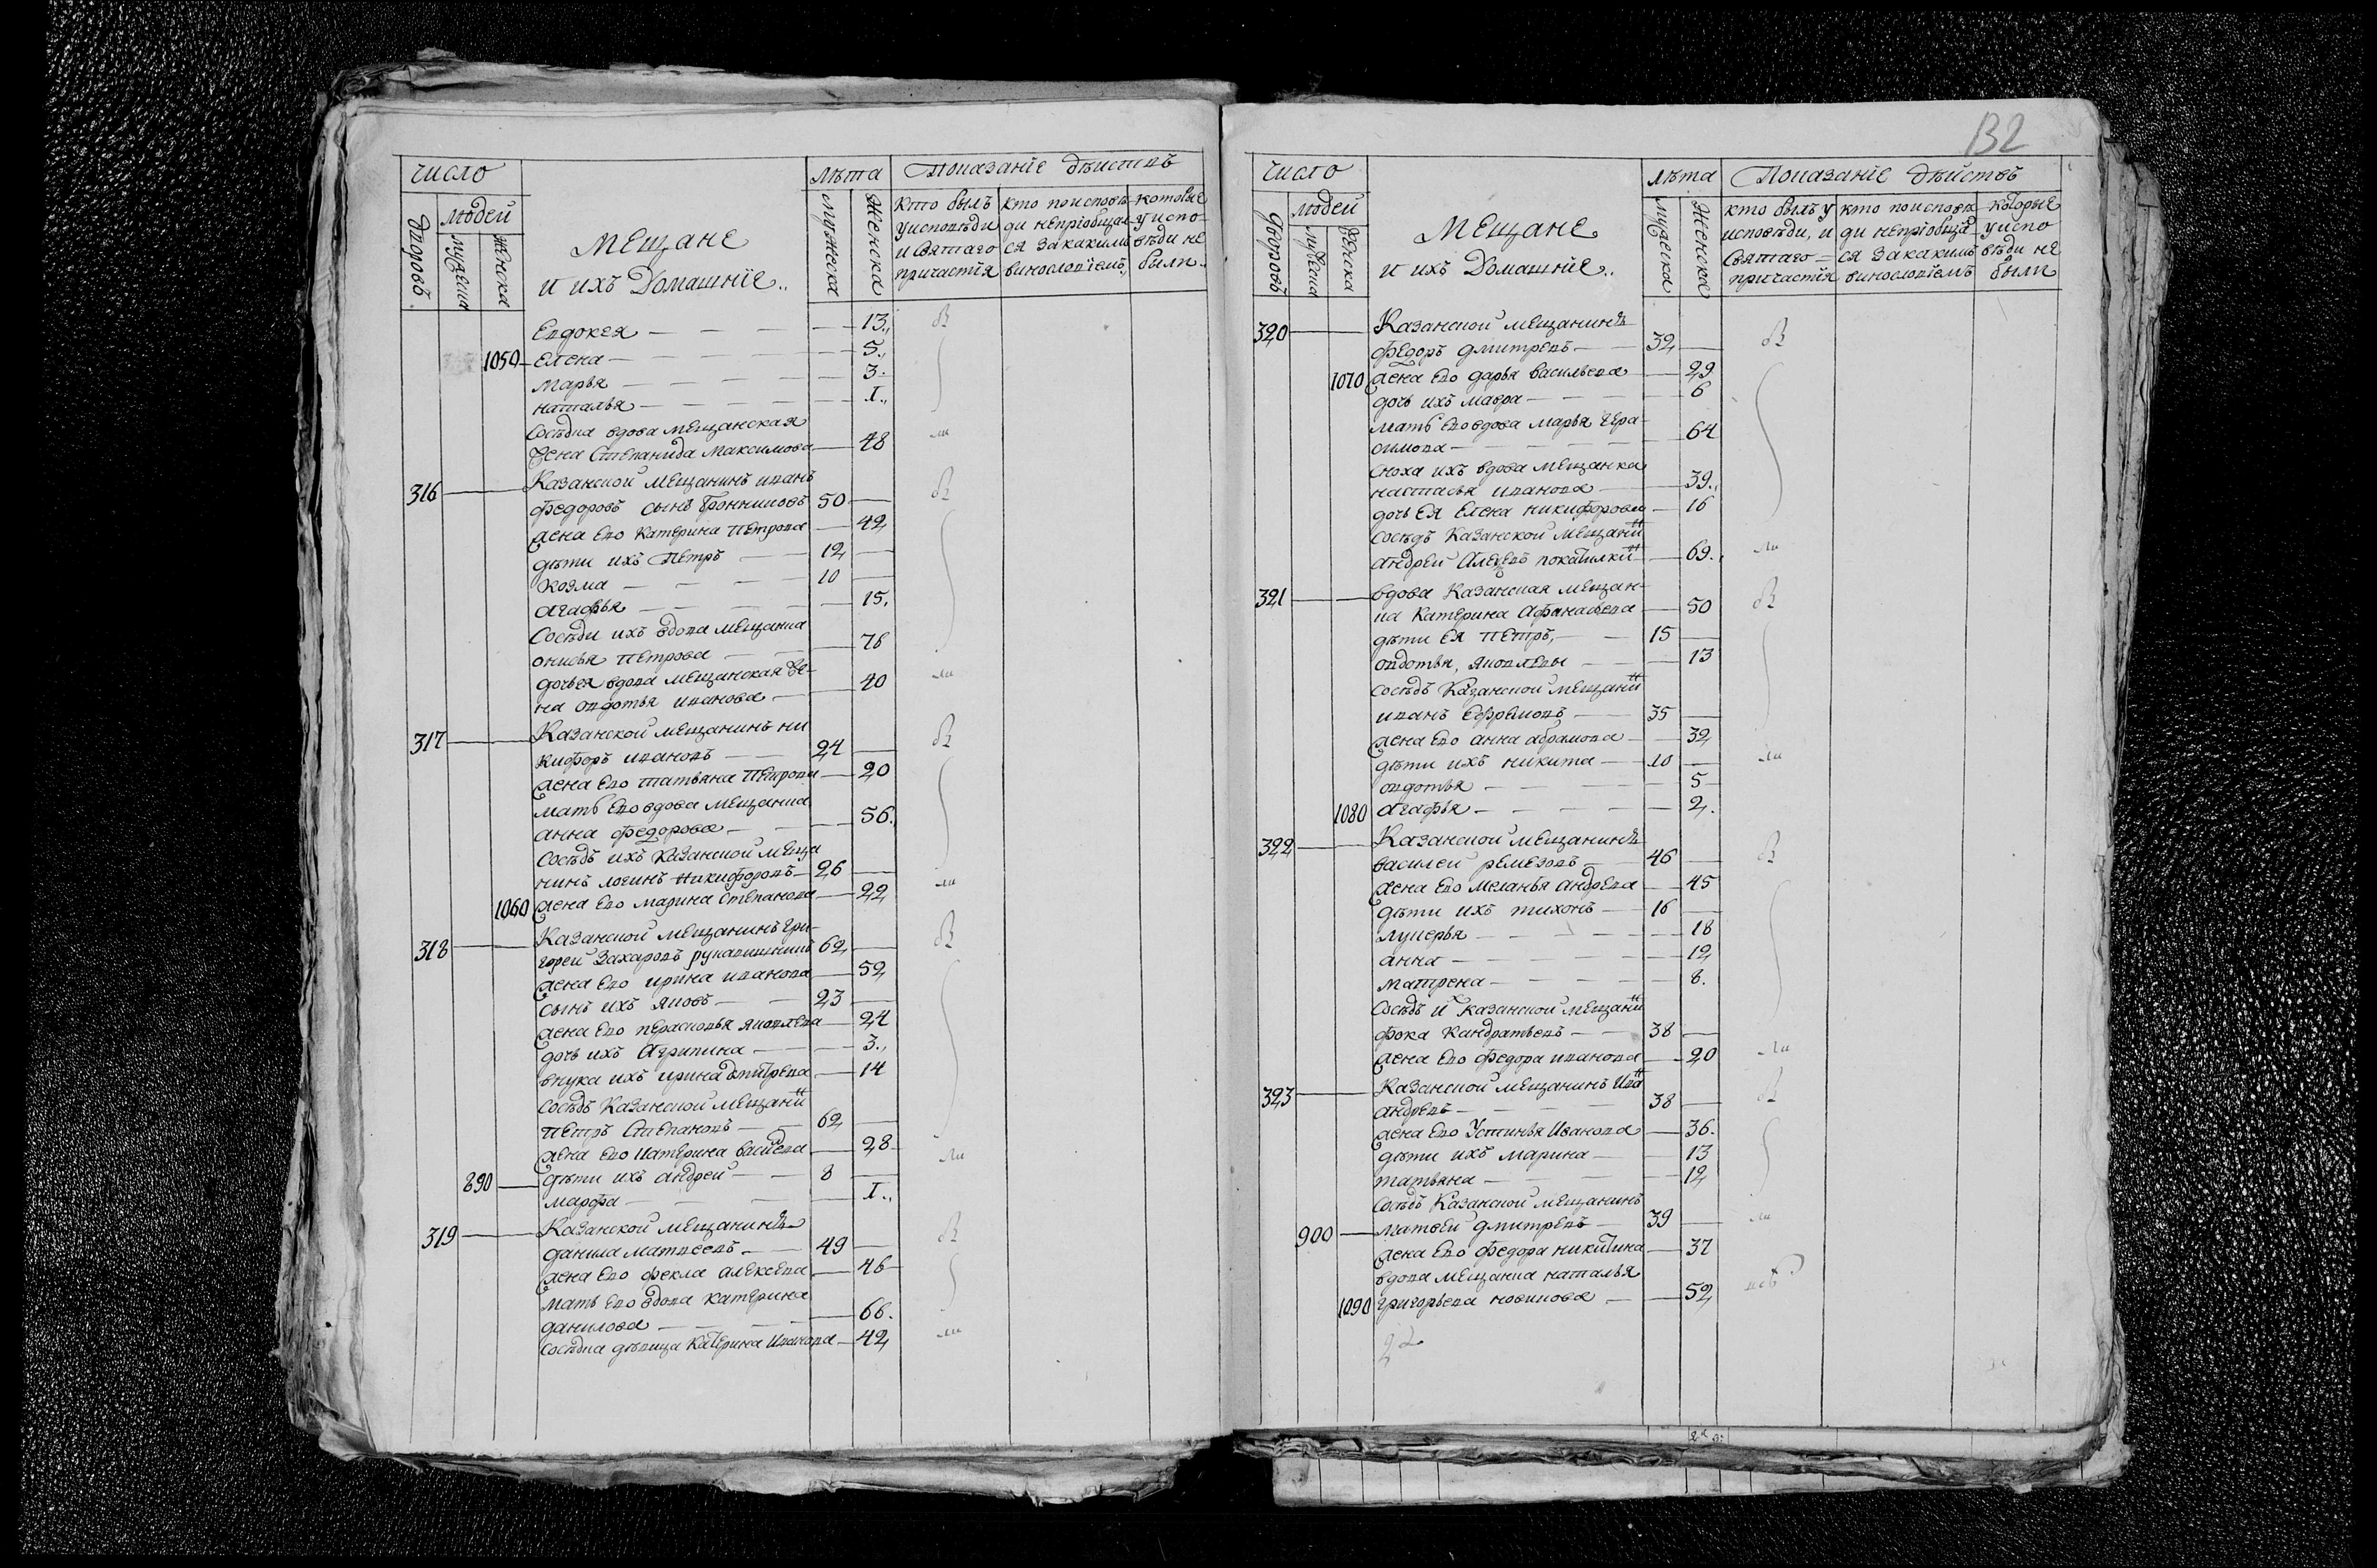 число
людей
дворовъ
мужеска
женска
Мещане
и ихъ Домашнїе..
лѣта
мужеска
Женска
Показанїе дѣиствъ
кто былъ
уисповѣди
и святаго
причастїя
кто поисповѣ-
ди непрїобщал-
ся закакимъ
винословїемъ,
которые
уиспо-
вѣди не
были.
Евдокея 13.
1050 Елена 5.
Марья 3.
наталья 1.
Сосѣдка вдова мещанская
жена Степанида Максимова 48
316 Казанской мещанинъ иванъ
федоровъ сынъ Бронниковъ 50
жена Ево Катерина Петрова 42
дѣти ихъ Петръ 12
Козма 10
Агафья 15.
Сосѣди ихъ вдова мещанка
онисья петрова 78
дочь ея вдова мещанская же-
на овдотья иванова 40
317 Казанской мещанинъ ни
кифоръ ивановъ 24
жена Ево татьяна Петрова 20
мать Ево вдова мещанка
анна федорова 56.
Сосѣдъ ихъ Казанской меща
нинъ логинъ никифоровъ 26
1060 жена Ево Марина Степанова 22
318 Казанской мещанинъ гри-
горей Захаровъ рукавишникъ 62
жена Ево ирина иванова 52
сынъ ихъ яковъ 23
жена Ево перасковья яковлева 24
дочь ихъ Агрипина 3.
внука ихъ ирина дмитрева 14
Сосѣдъ Казанской мещани
петръ Степановъ 62
жена Ево Катерина васильева 28
890 дѣти ихъ андрей 8
марфа 1.
319 Казанской мещанинъ
данила матвеевъ 49
жена Ево фекла алексева 46
мать Ево вдова катерина
данилова 66.
сосѣдка дѣвица Катерина Иванова 42
132
число
людей
дворовъ
мужеска
женска
Мещане
и ихъ Домашнїе..
лѣта
мужеска
Женска
Показанїе дѣйствъ
кто былъ у
исповѣди, и
святаго
причастїя
кто поисповѣ-
ди непрїобща-
ся закакимъ
винословїемъ
которые
уиспо
вѣди не
были
320 Казанской мещанинъ
федоръ дмитревъ 32
1070 жена Ево дарья васильева 29
дочь ихъ мавра 6
мать Ево вдова марья гера-
симова 64
сноха ихъ вдова мещанка
настасья иванова 39.
дочь Ея Елена никифорова 16
Сосѣдъ Казанской мещани
андрей Алеѯевъ покатилки 69.
321 вдова Казанская мещан-
ка Катерина Афанасьева 50
дѣти Ея петръ, 15
овдотья, яковлевы 13
сосѣдъ Казанской мещани
иванъ Ефремовъ 35
жена Ево анна абрамова 32
дѣти ихъ никита 10
овдотья 5
1080 агафья 2.
322 Казанской мещанинъ
василей ремезовъ 46
жена Ево меланья андрева 45
дѣти ихъ тихонъ 16
лукерья 18
анна 12
матрена 8.
Сосѣдъ и казанской мещани
фока кандратьевъ 38
жена Ево федора иванова 20
323 Казанской мещанинъ Ива
андревъ 38
жена Ево Устинья Иванова 36.
дѣти ихъ марина 13
татьяна 12
Сосѣдъ Казанской мещанинъ
900 матвей дмитревъ 39
жена Ево федора никитина 37
вдова мещанка наталья
1090 григорьева новикова 52